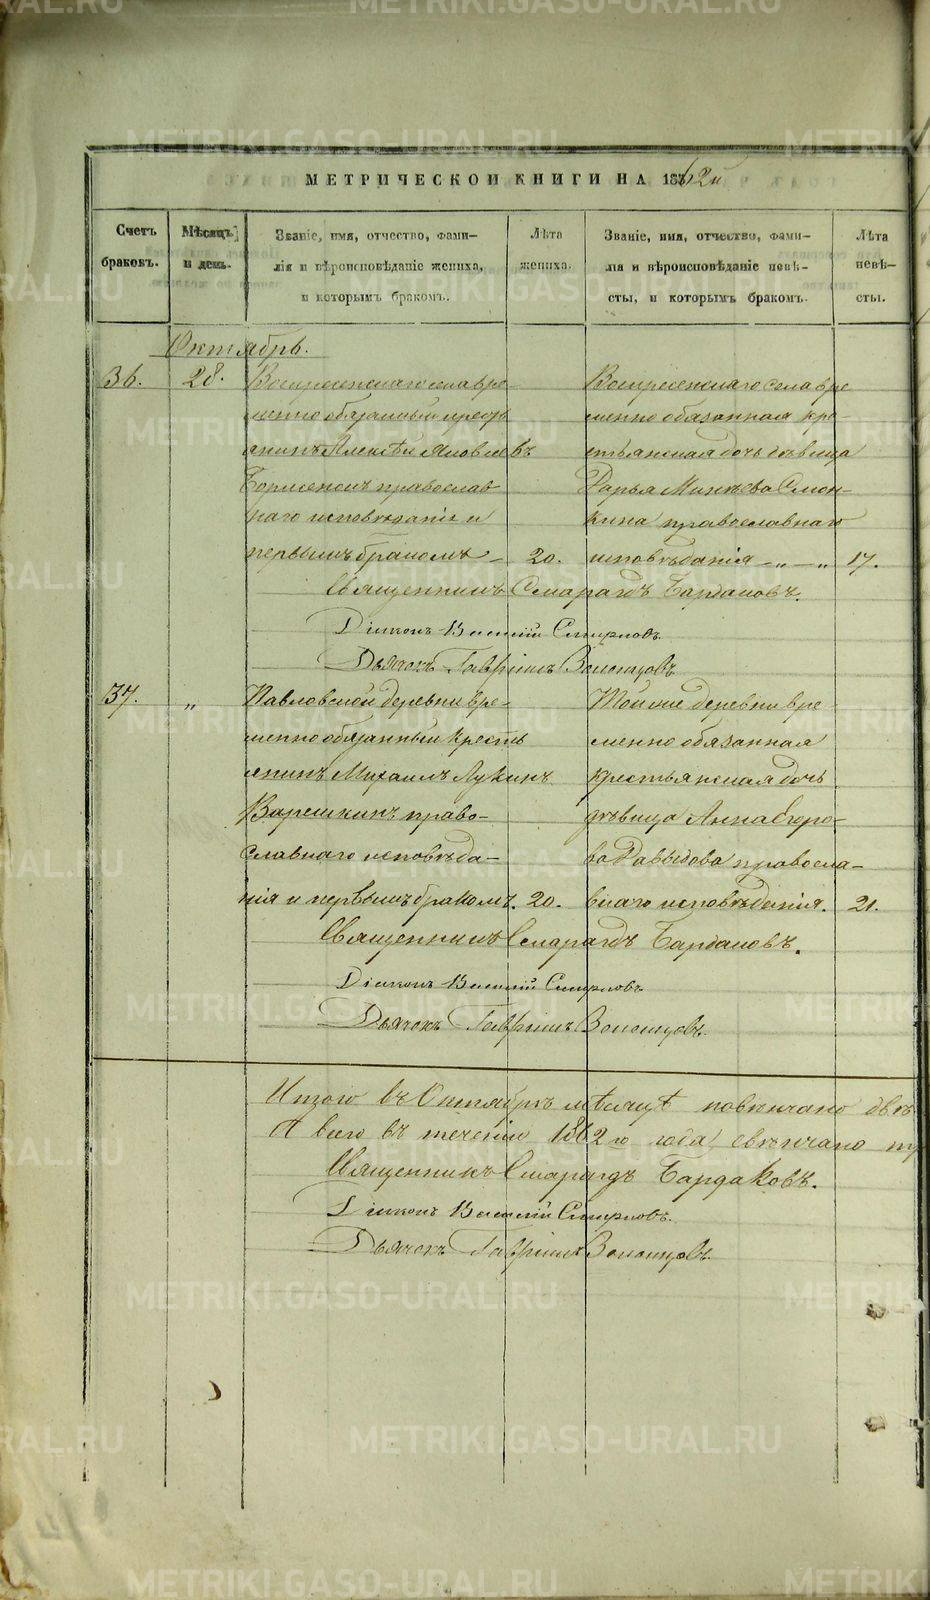 МЕТРИЧЕСКОЙ КНИГИ НА 1862й
Счетъ браковъ.
Мѣсяцъ и день.
Званіе, имя, отчество, фами-
лія и вѣроисповѣданіе жениха,
и которымъ бракомъ.
Лѣта жениха.
Званіе, имя, отчество, фами-
лія и вѣроисповѣданіе невѣ-
сты, и которымъ бракомъ.
Лѣта невѣ-
сты.
Октябрь.
36. 28.
Воскресенскаго села вре-
менно обязанный кресть
янинъ Алексѣй Яковлевъ
православ
наго исповѣданія и
первымъ бракомъ 20.
Воскресенскаго села вре
менно обязанная кре-
стьянская дочь дѣвица
Дарья Минѣева Смон-
кина православнаго
исповѣданія -„-„ 17.
Священникъ Смарагдъ Бардаковъ.
Діаконъ Василій Смирновъ
Дьячокъ Гавріилъ
37. „
Павловской деревни вре-
менно обязанный кресть
янинъ Михаилъ Лукинъ
Варешкинъ право-
славнаго исповѣда-
нія и первымъ бракомъ. 20.
Той же деревни вре-
менно обязанная
крестьянская дочь
дѣвица Анна Егоро-
ва Давыдова правосла-
внаго исповѣданія. 21.
Священникъ Смарагдъ Бардаковъ.
Діаконъ Василій Смирновъ
Дьячокъ Гавріилъ
Итого въ Октябрѣ мѣсяцѣ повѣнчано двѣ
А всего въ теченіи 1862го года свѣнчано
Священникъ Смарагдъ Бардаковъ.
Діаконъ Василій Смирновъ.
Дьячокъ Гавріилъ
METRIKI.GASO-URAL.RU